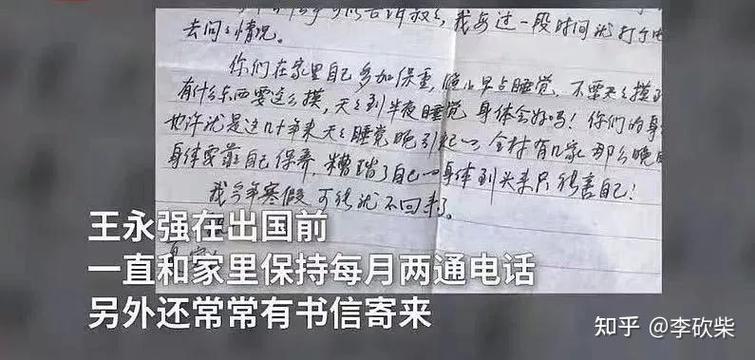 我每过一段时间就打个电
去问问情况。
你们在家里自己多加保重,晚上早点睡觉,不要天天摸
有什么东西要这么摸,天天到半夜睡觉 身体会好吗!你们的身
也许就是这几十年来天天睡觉晚引起的。全村有几家那么晚
身体要靠自己保养,糟蹋了自己的身体到头来只能害自己!
我今年寒假可能就不回来了。
王永强在出国前
一直和家里保持每月两通电话
另外还常常有书信寄来
知乎 @李砍柴